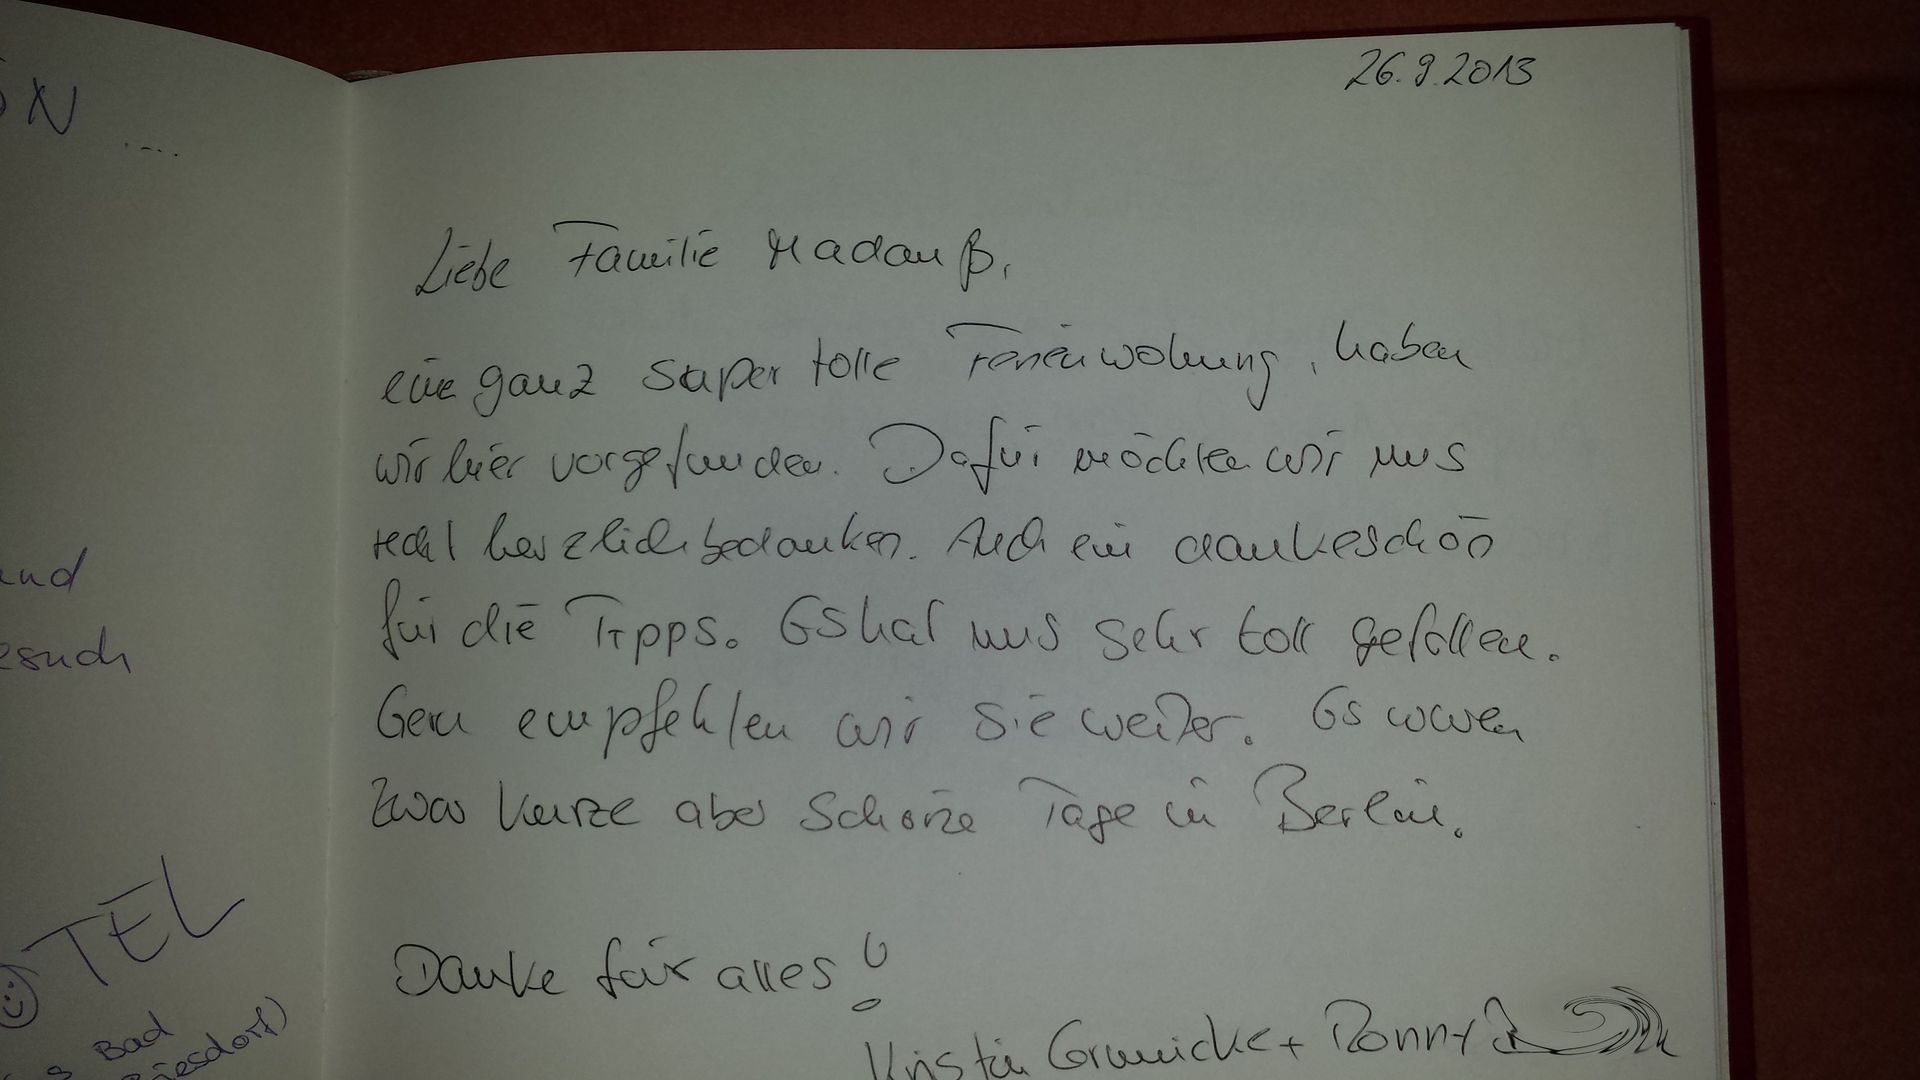 N ....
und
esuch
TEL
Bad
26.9.2013
Liebe Familie Madauß,
eine ganz super tolle Ferienwohnung, haben
wir hier vorgefunden. Dafür möchten wir uns
recht herzlich bedanken. Auch ein dankeschön
für die Tipps. Es hat uns sehr toll gefallen.
Gern empfehlen wir Sie weiter. Es waren
zwar kurze aber schöne Tage in Berlin.
Danke für alles!
Kristin + Ronny